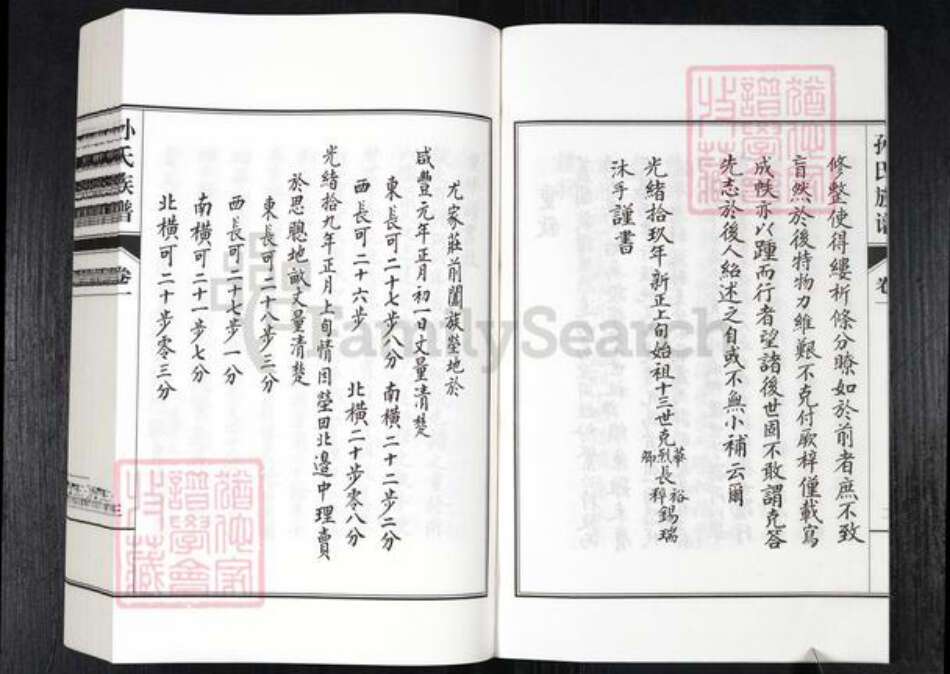 孙氏族谱
卷
修整使得縷析條分瞭如於前者庶不致
盲然於後特物力維艱不克付厥梓僅載寫
成帙亦以踵而行者望諸後世固不敢謂克答
先志於後人紹述之自或不無小補云爾
光緒拾玖年新正上旬始祖十三世克烈長稡錫瑞
華裕
卿
沐手謹書
尤家莊前闔族塋地於
咸豐元年正月初一日丈量清楚
東長可二十七步八分 南橫二十二步二分
西長可二十六步 北橫二十步零八分
光緒拾九年正月上旬情因塋田北邊中理賣
於思聰地畝丈量清楚
東長可二十八步三分
西長可二十七步一分
南橫可二十一步七分
北橫可二十步零三分
孙氏族谱
卷一
三
猶他家譜學會收藏
猶他家譜學會收藏
FamilySearch